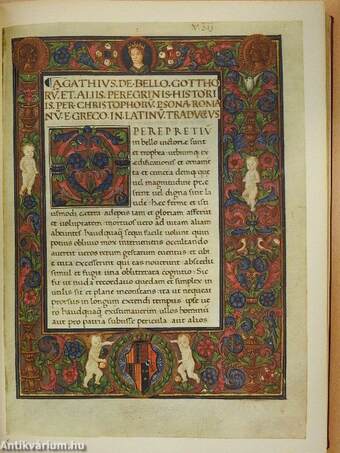 ¶AGATHIVS.DE.BELLO.GOTTHO
RV̄.ET.ALIIS.PEREGRINIS.HISTORI
IS.PER.CHRISTOPHORV̄.PSONA.ROMA
NV̄.E.GRECO.IN.LATINV̄.TRADVCTVS
PEREPRETIV̄
in bello victoriæ sunt
et trophea urbiumq; ex
ædificationes et ornamē
ta et cuncta deniq; quæ
uel magnitudine præ
sent uel digna sunt la
ude. hæc ferme et isti
usmodi cætera adeptis tam et gloriam afferūt
et voluptatem. mortuos uero ad uitam aliam
abeuntes haudquaq̄ sequi facile volunt quin
potius obliuio mox interueniens occultando
auertit ueros rerum gestarum euentus. et ub
i uita excesserint qui eas nouerunt abscedit
simul et fugit una oblitterata cognitio. Sic
fit ut nuda recordatio quædam et simplex in
utilis sit et plane inconstans. ita ut nequeat
prorsus in longum extendi tempus. ipse ue
ro haudquaq̄ existimauerim ullos hominū
aut pro patria subiisse pericula. aut alios
Antikvarium.hu